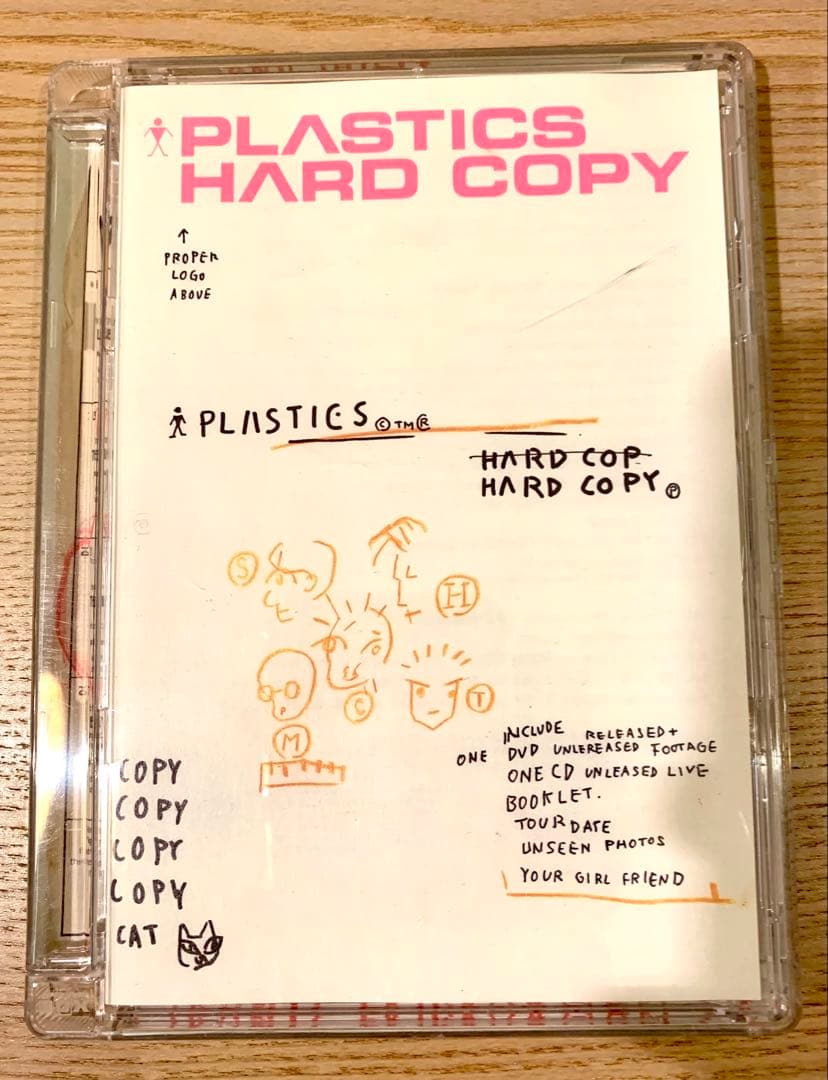 PLASTICS
HARD COPY
↑
PROPER
LOGO
ABOVE
PLASTICS ©™®
HARD COP
HARD COPY ℗
S
H
C
T
M
INCLUDE RELEASED+
ONE DVD UNLEREASED FOOTAGE
ONE CD UNLEASED LIVE
BOOKLET.
TOUR DATE
UNSEEN PHOTOS
YOUR GIRL FRIEND
COPY
COPY
COPY
COPY
CAT